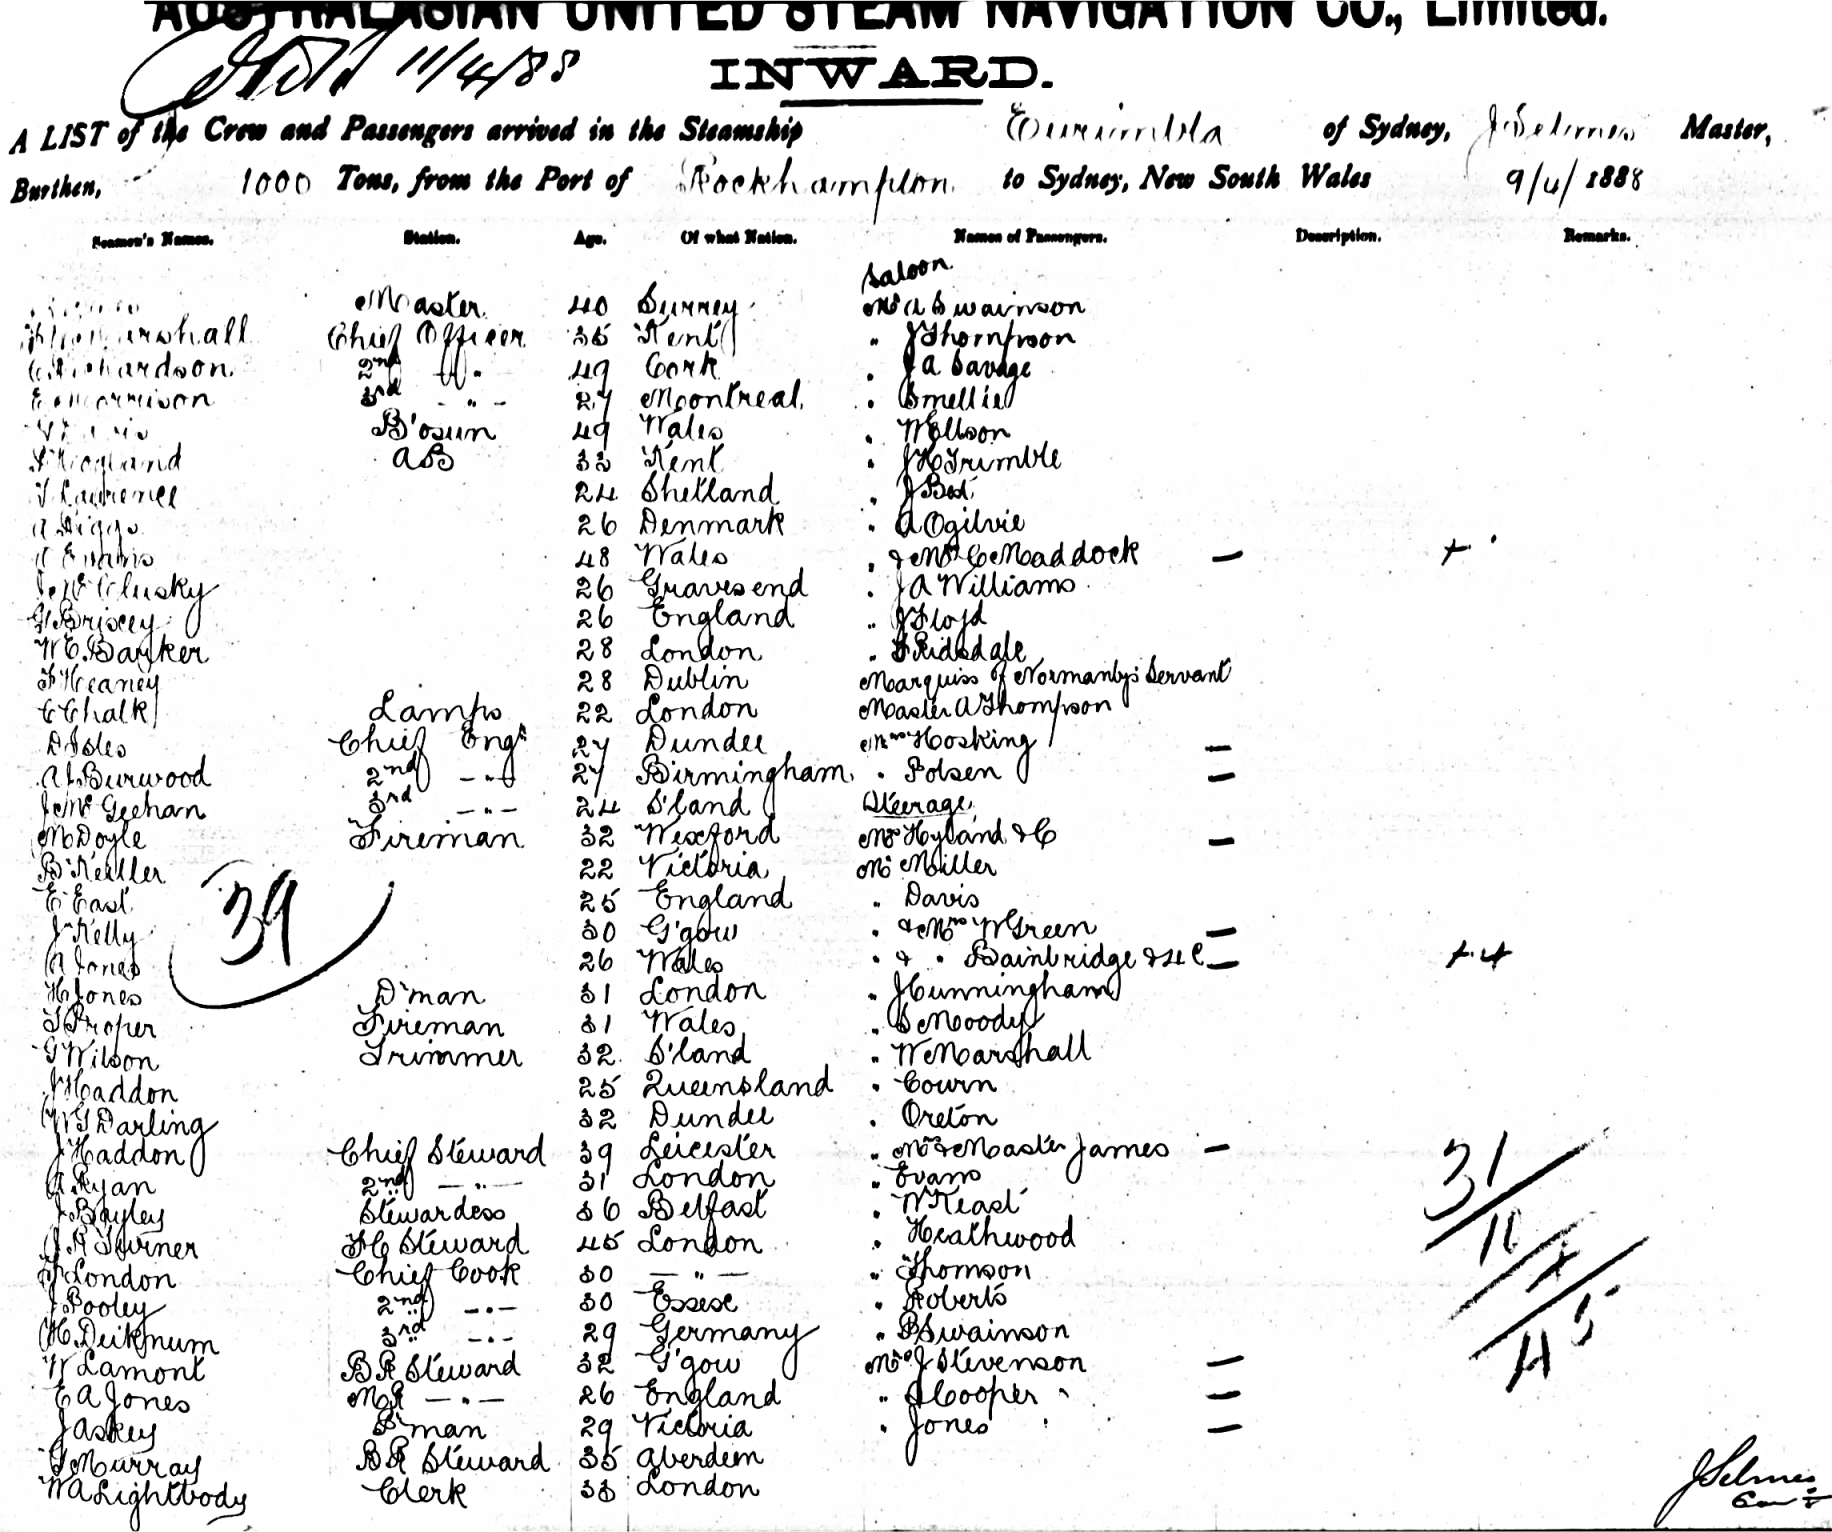 AUSTRALASIAN UNITED STEAM NAVIGATION CO., Limited.
11/4/88 INWARD.
A LIST of the Crew and Passengers arrived in the Steamship Eurimbla of Sydney, J Selmes Master,
Burthen, 1000 Tons, from the Port of Rockhampton to Sydney, New South Wales 9/4/1888
Seamen's Names. Station. Age. Of what Nation. Names of Passengers. Description. Remarks.
Saloon
Master 40 Surrey Mr A Swainson
Marshall Chief Officer 35 Kent " J Thompson
Richardson 2nd " 49 Cork " J A Savage
E Morrison 3rd - " - 27 Montreal " Smellie
B'osun 49 Wales " W Ellson
AB 33 Kent " J H Trimble
Laurence 24 Shetland " J Best
26 Denmark " A Ogilvie
Evans 48 Wales " & Mrs C Maddock — +
J McClusky 26 Gravesend " J A Williams
G Briscey 26 England " J Floyd
W E Barker 28 London " F Ridsdale
F Heaney 28 Dublin Marquiss of Normanby's Servant
C Chalk Lamps 22 London Master A Thompson
D Isles Chief Engr 27 Dundee Mrs Hosking —
A J Burwood 2nd - " - 27 Birmingham " Polsen —
J McGeehan 3rd - " - 24 S'land Steerage
M Doyle Fireman 32 Wexford Mrs Hyland & C —
B Keller 22 Victoria Mr Miller
E East 25 England " Davis
J Kelly 30 G'gow " & Mrs W Green —
A Jones 26 Wales " & " Bainbridge & 4 C — + 4
39
H Jones D'man 31 London " J Cunningham
T Proper Fireman 31 Wales " S Moody
G Wilson Trimmer 32 S'land " W Marshall
J Haddon 25 Queensland " Cowrn
W G Darling 32 Dundee " Oreton
J Haddon Chief Steward 39 Leicester " Mrs & Master James —
A Ryan 2nd - " - 31 London " Evans
J Bayley Stewardess 36 Belfast " W Keast
J R Turner F C Steward 45 London " Heathwood
J London Chief Cook 30 - " - " Thomson
J Pooley 2nd - " - 30 Essex " Roberts
H Deikmum 3rd - " - 29 Germany " P Swainson
W Lamont B R Steward 32 G'gow Mrs J Stevenson —
E A Jones M R - " - 26 England " S Cooper " —
J Askey P'man 29 Victoria " Jones —
G Murray B R Steward 35 Aberdeen
W A Lightbody Clerk 33 London
31
45
J Selmes